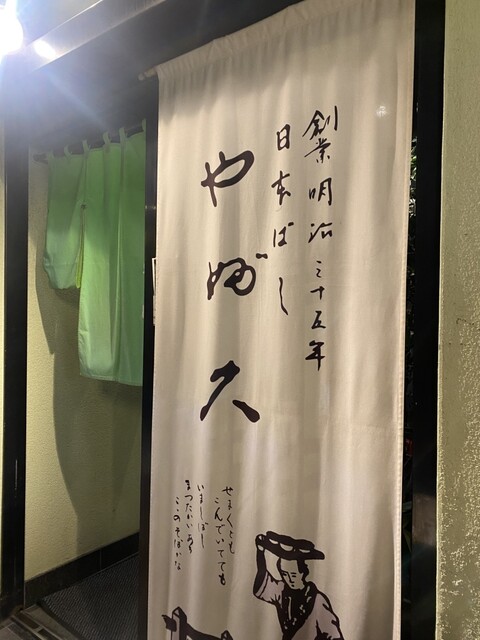 創業明治三十五年
日本ばし
やぶ久
せまくとも
こんでいても
いましばし
まつたかいある
このそばかな